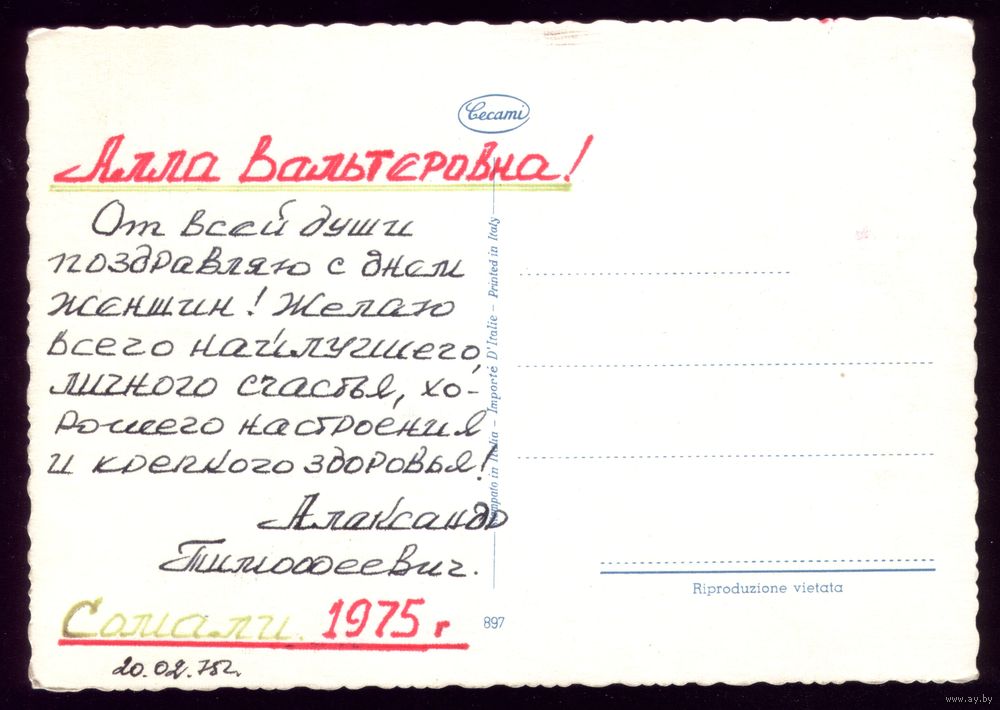 Cecami
Алла Вальтеровна!
От всей души
поздравляю с днем
женщин! Желаю
всего наилучшего,
личного счастья, хо-
рошего настроения
и крепкого здоровья!
Александр
Тимофеевич.
Сомали. 1975 г
20.02.75г.
Stampato in Italia – Importé D'Italie – Printed in Italy
897
Riproduzione vietata
www.ay.by